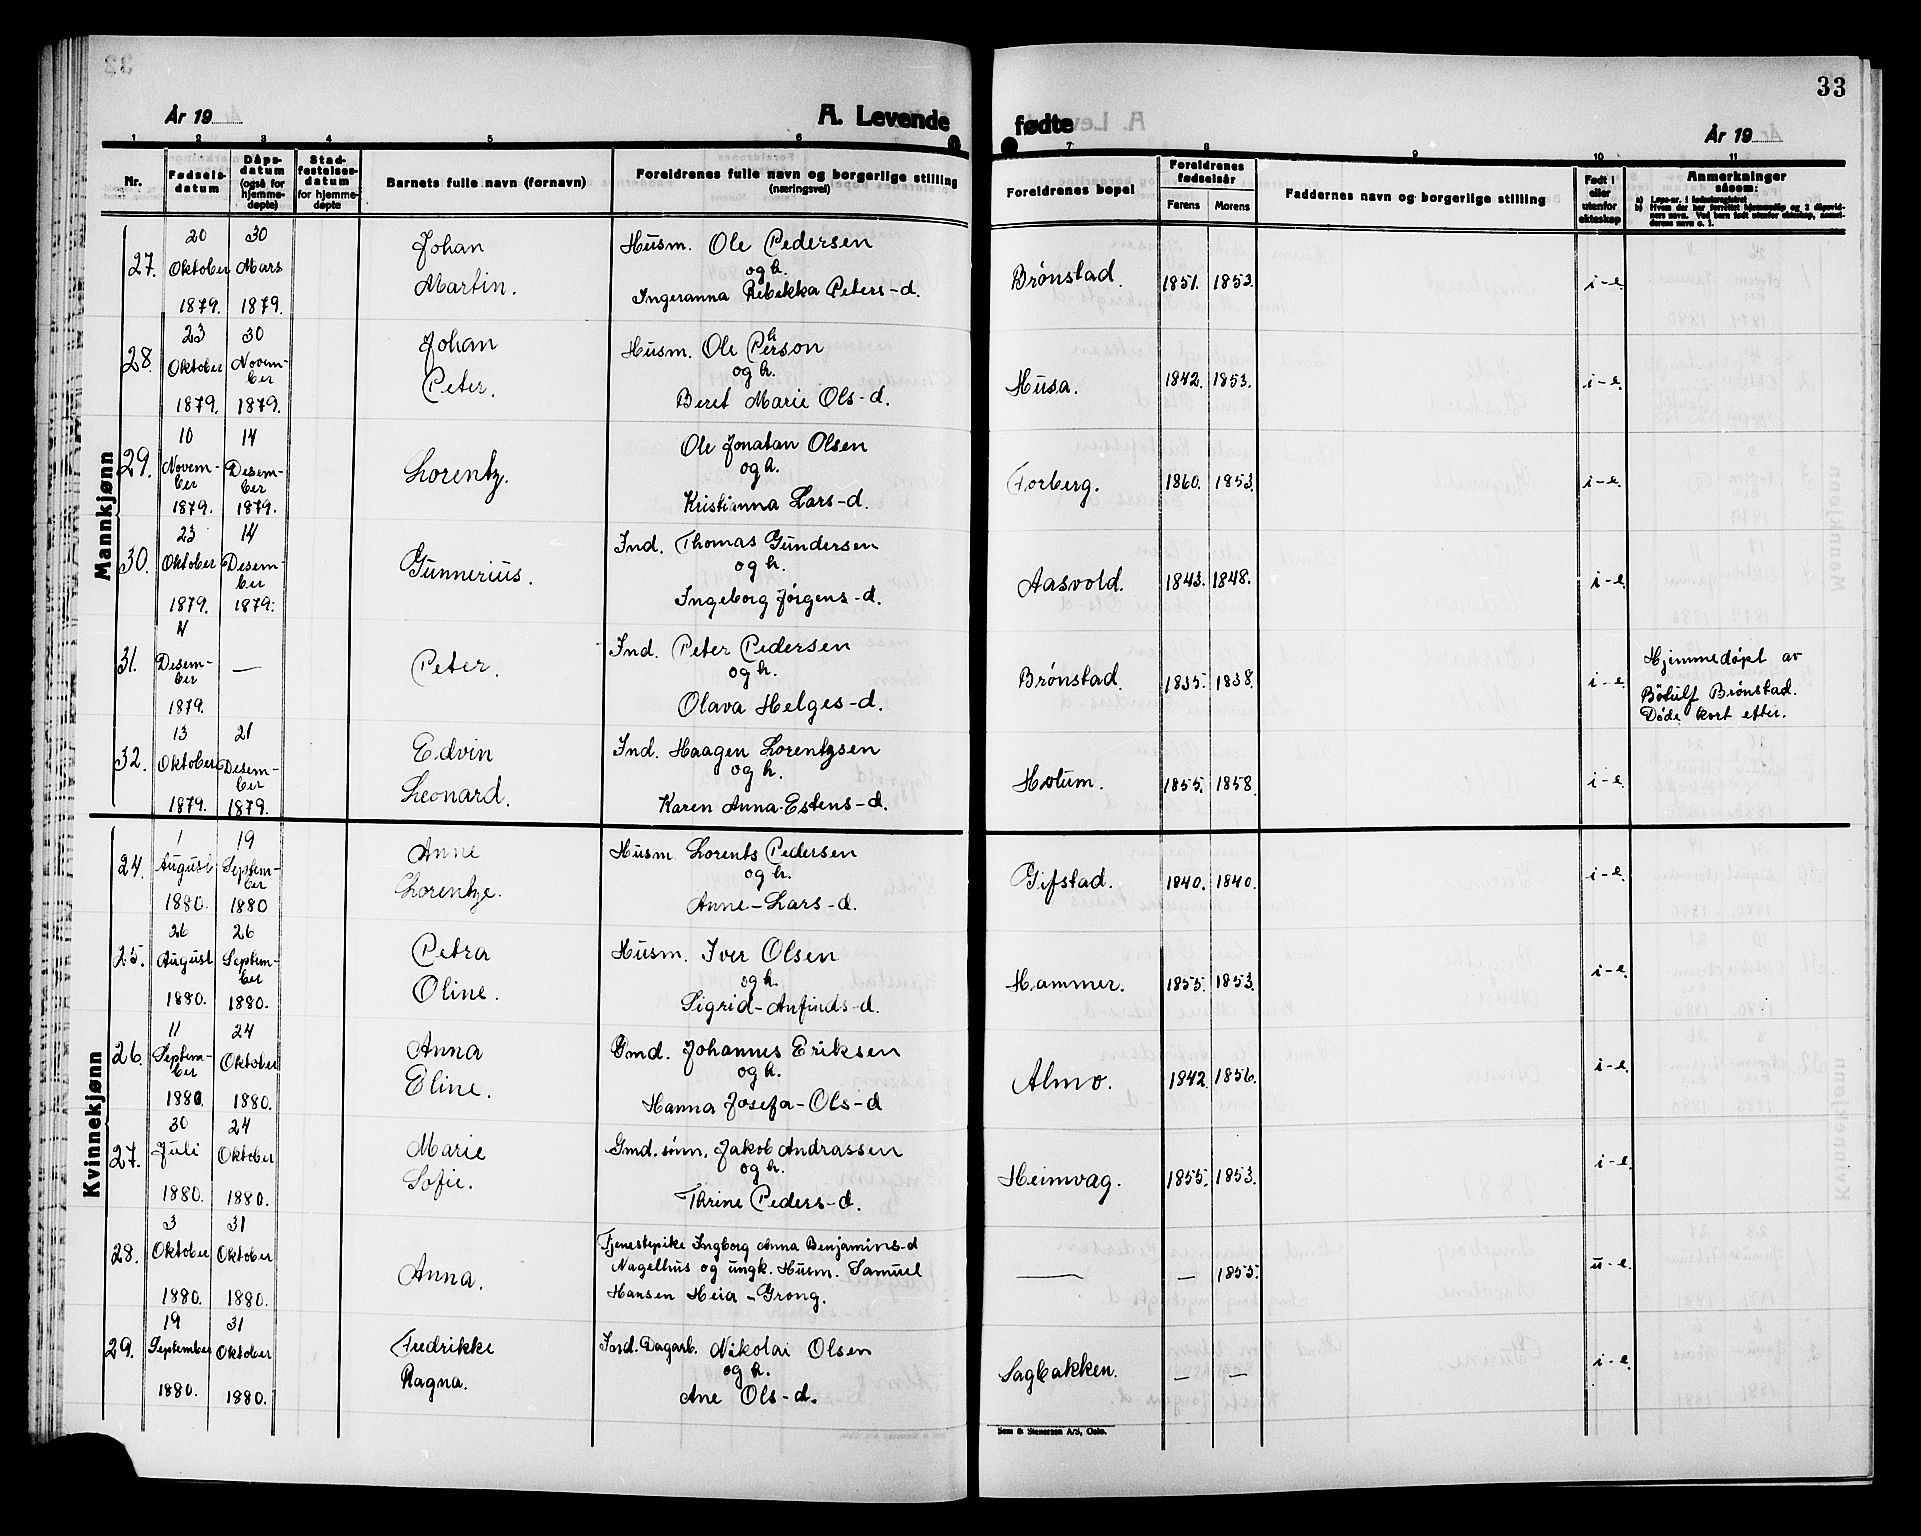 33
År 19
A. Levende
fødte
År 19
1 2 3 4 5 6 7 8 9 10 11
Nr.
Fødsels-
datum
Dåps-
datum
(også for
hjemme-
døpte)
Stad-
festelses-
datum
for hjemme-
døpte
Barnets fulle navn (fornavn)
Foreldrenes fulle navn og borgerlige stilling
(næringsvei)
Foreldrenes bopel
Foreldrenes
fødselsår
Farens Morens
Faddernes navn og borgerlige stilling
Født i
eller
utenfor
ekteskap
Anmerkninger
såsom:
a) Løpe-nr. i fødselsregistret
Mannkjønn
27. 20 Oktober 1879. 30 Mars 1879. Johan Martin. Husm. Ole Pedersen
og h.
Ingeranna Rebekka Peters-d. Brønstad. 1851. 1853. i-e.
28. 23 Oktober 1879. 30 Novem-ber 1879. Johan Peter. Husm. Ole Person
og h.
Beret Marie Ols-d. Husa. 1842. 1853. i-e.
29. 10 Novem-ber 1879. 14 Desem-ber 1879. Lorentz. Ole Jonatan Olsen
og h.
Kristianna Lars-d. Forberg. 1860. 1853. i-e.
30. 23 Oktober 1879. 14 Desem-ber 1879. Gunnerius. Ind. Thomas Gundersen
og h.
Ingeborg Jørgens-d. Aasvold. 1843. 1848. i-e
31. 4 Desem-ber 1879. — Peter. Ind. Peter Pedersen
og h.
Olava Helges-d. Brønstad. 1835. 1838. i-e. Hjemmedøpt av
Botulf Brønstad.
Døde kort etter.
32. 13 Oktober 1879. 21 Desem-ber 1879. Edvin Leonard. Ind. Haagen Lorentzsen
og h.
Karen Anna Estens-d. Hotum. 1855. 1858. i-e.
Kvinnekjønn
24. 1 August 1880. 19 Septem-ber 1880 Anne Lorentze. Husm. Lorents Pedersen
og h.
Anne-Lars-d. Gifstad. 1840. 1840. i-e.
25. 26 August 1880. 26 Septem-ber 1880. Petra Oline. Husm. Iver Olsen
og h.
Sigrid-Anfinds-d. Hammer. 1855. 1853. i-e.
26. 11 Septem-ber 1880. 24 Oktober 1880. Anna Eline. Gmd. Johannes Eriksen
og h.
Hanna Josefa-Ols-d Almo. 1842. 1856. i-e.
27. 30 Juli 1880. 24 Oktober 1880. Marie Sofie. Gmd. sønn. Jakob Andrassen
og h.
Thrine Peders-d. Heimvag. 1855. 1853. i-e.
28. 3 Oktober 1880. 31 Oktober 1880. Anna. Tjenestepike Ingborg Anna Benjamins-d
Nagelhus og ungk. Husm. Samuel
Hansen Heia-Grong. — — 1855. u-e.
29. 19 September 1880. 31 Oktober 1880. Fredrikke Ragna. Ind. Dagarb. Nikolai Olsen
og h.
Ane Ols-d. Sagbakken. — — i-e.
Sem & Stenersen A/S, Oslo.